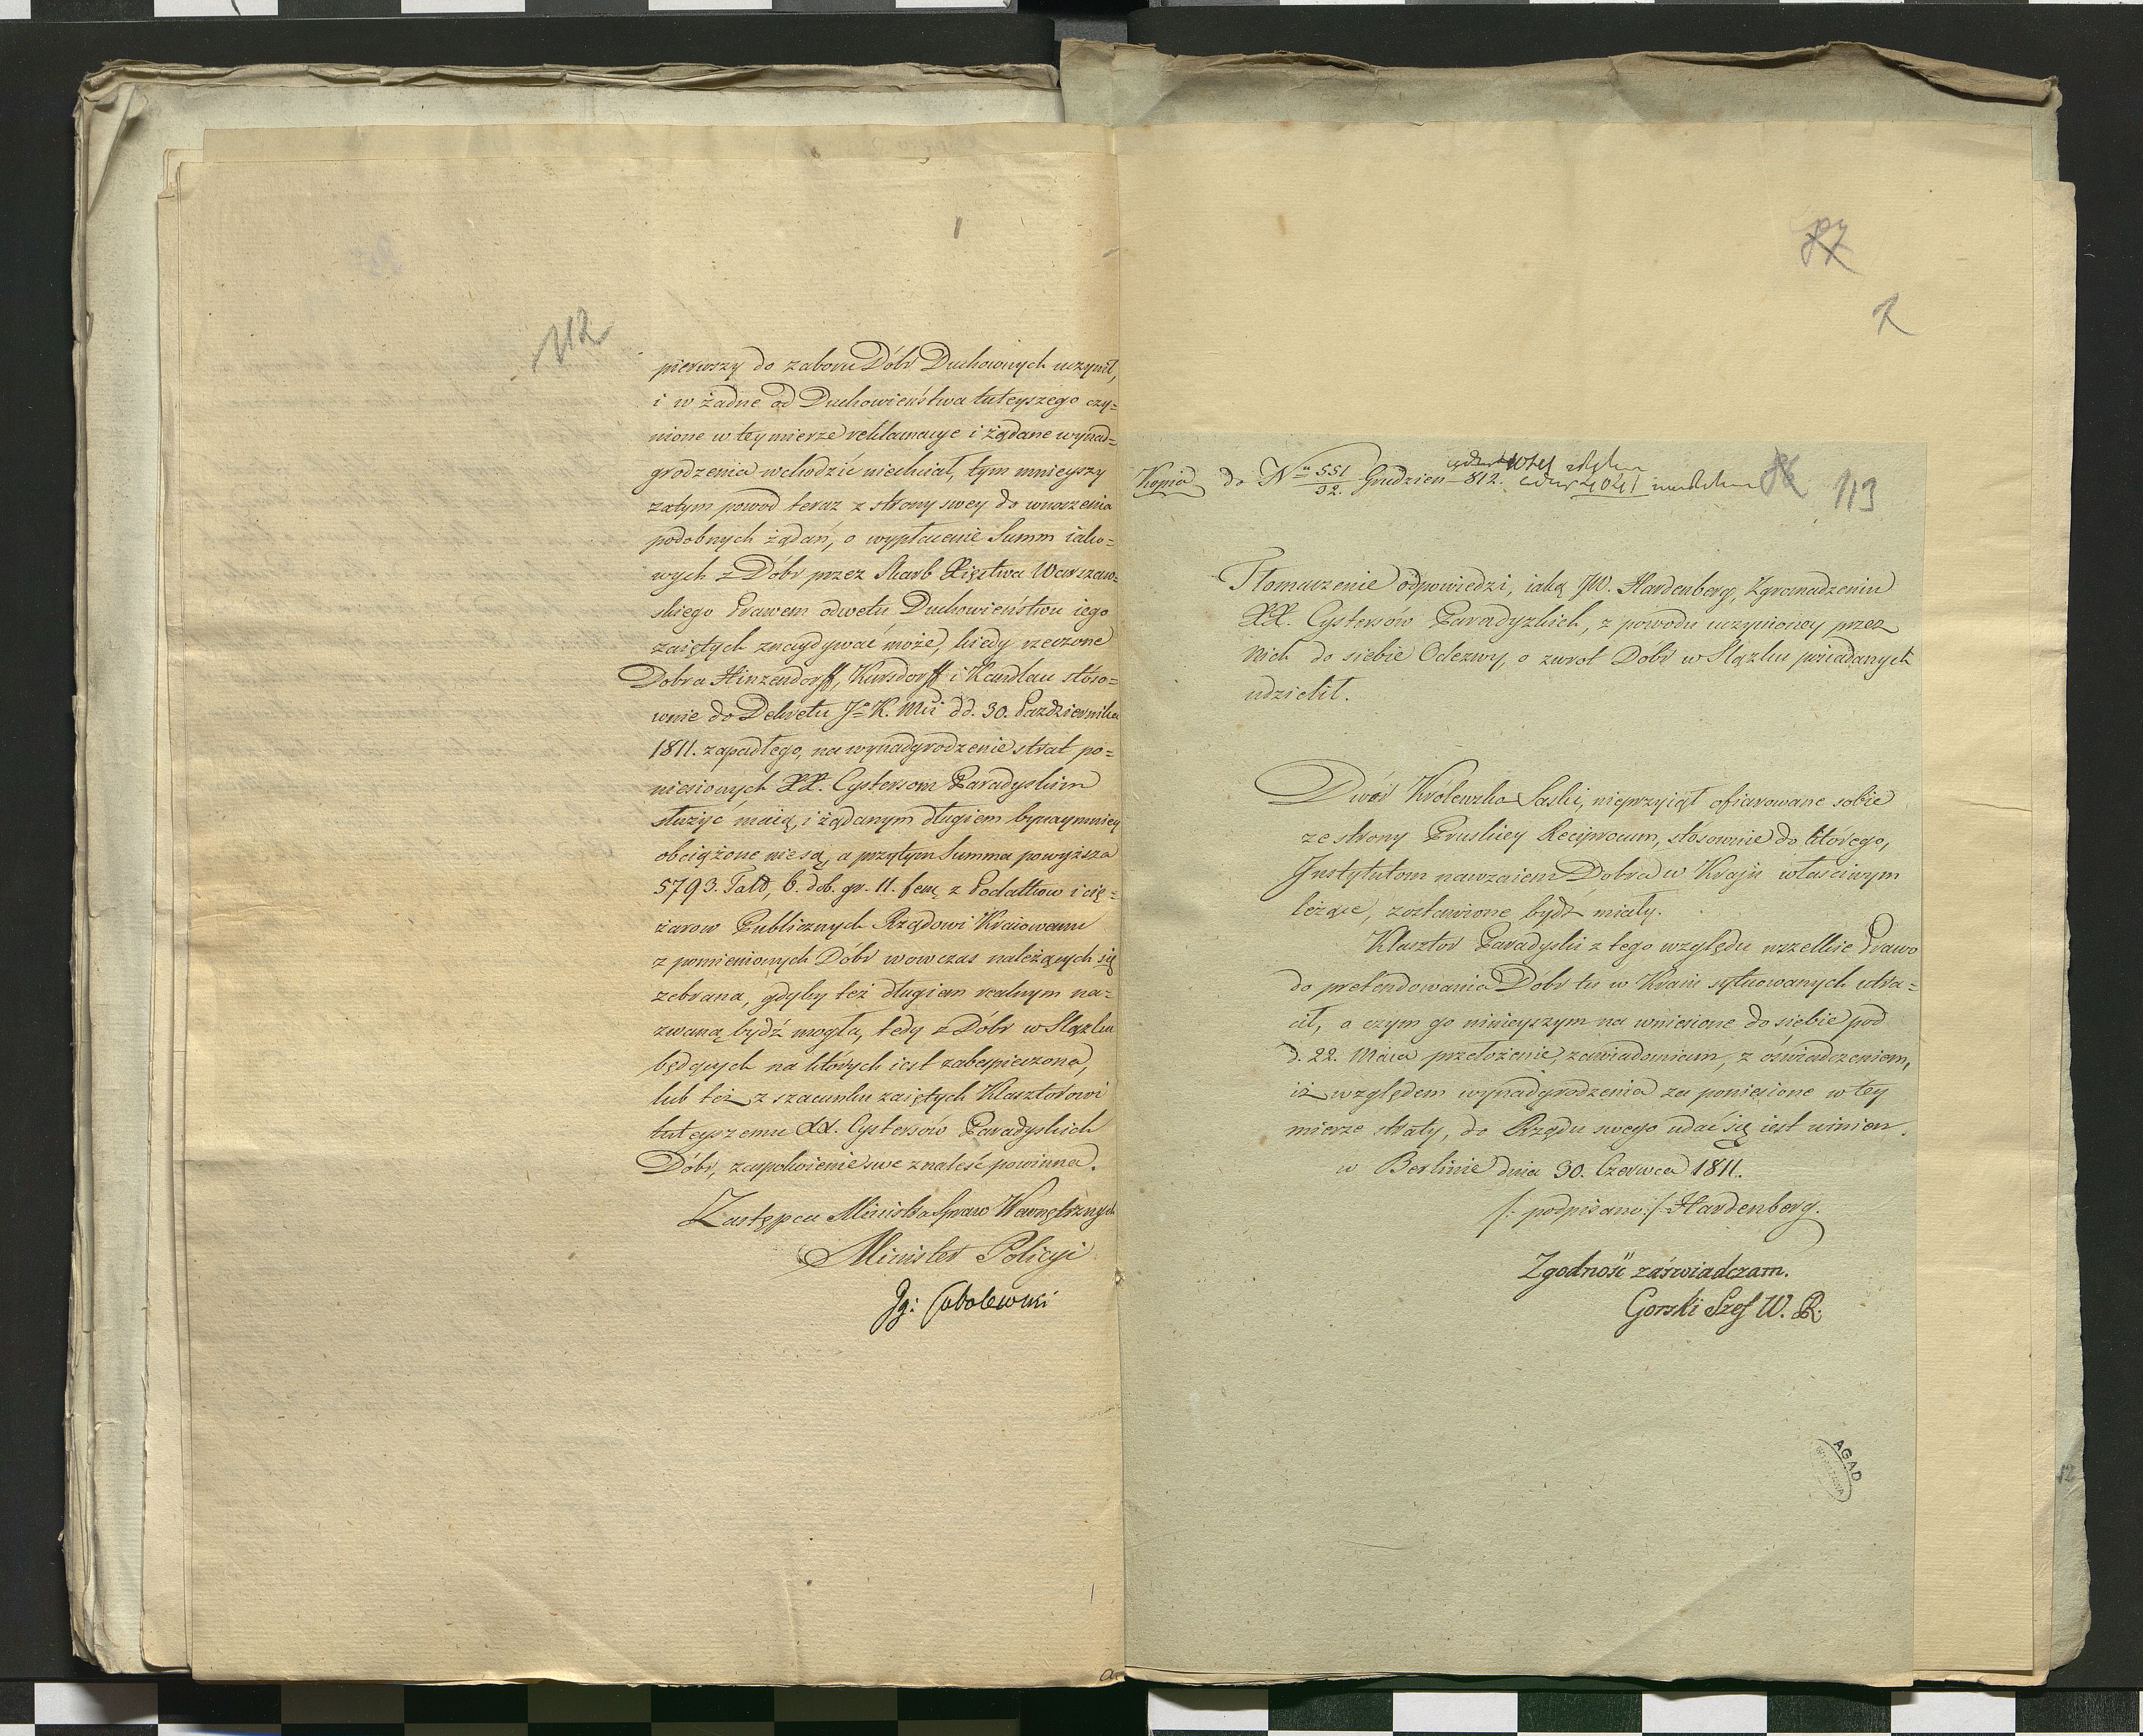 112
pierwszy do zaboru Dóbr Duchownych uczynił,
i w żadne od Duchowieństwa tuteyszego czy=
nione w tey mierze reklamacye i żądane wynad=
grodzenia wchodzić niechciał, tym mnieyszy
zatym powod teraz z strony swey do wnoszenia
podobnych żądań, o wypłacenie Summ iako=
wych z Dóbr przez Skarb Xięstwa Warszaw=
skiego Prawem odwetu Duchowieństwu iego
zaiętych znaydywać może, kiedy rzeczone
Dobra Hinzendorff, Kursdorff i Kandlau stóso=
wnie do Dekretu Jo K. Mci dd. 30. Pazdziernika
1811. zapadłego, na wynadgrodzenie strat po=
niesionych XX. Cystersom Paradyskim
służyć maią, i żądanym długiem bynaymniey
obciążone niesą, a przytym Summa powyższa
5793. Tald, 6. dob. gr. 11. fen. z Podatkow i cię=
żarow Publicznych Rządowi Kraiowemu
z pomienionych Dóbr wowczas należących się
zebrana, gdyby też długiem realnym na=
zwaną bydź mogła, tedy z Dóbr w Slązku
będących na których iest zabespieczona,
lub też z szacunku zaiętych Klasztorowi
tuteyszemu XX. Cystersów Paradyskich
Dóbr, zaspokoienie swe znaleść powinna.
Zastępca Ministra Spraw Wewnętrznych
Minister Policyi
Ig: Sobolewski
87
1
Kopia do Nru 551/D2. Grudzien 812.
86 113
Tłomaczenie odpowiedzi, iaką JW. Hardenberg, Zgromadzeniu
XX. Cystersów Paradyzkich, z powodu uczynioney przez
nich do siebie Odezwy, o zwrot Dobr w Slązku posiadanych
udzielił.
Dwór Królewsko Saski, nieprzyiął ofiarowane sobie
ze strony Pruskiey Reciprocum, stosownie do którego,
Instytutom nawzaiem Dobra w Kraju właściwym
leżące, zostawione bydź miały.
Klasztor Paradyski z tego względu wszelkie Prawo
do pretendowania Dóbr tu w Kraiu sytuowanych utra=
cił, o czym go ninieyszym na wniesione do siebie pod
d. 22. Maia przełożenie, zawiadomiam, z oświadczeniem,
iż względem wynadgrodzenia za poniesione w tey
mierze straty, do Rządu swego udać się iest winien.
w Berlinie dnia 30. Czerwca 1811.
/: podpisano :/ Hardenberg.
Zgodność zaświadczam.
Gorski Szef W. R.
AGAD
WARSZAWA